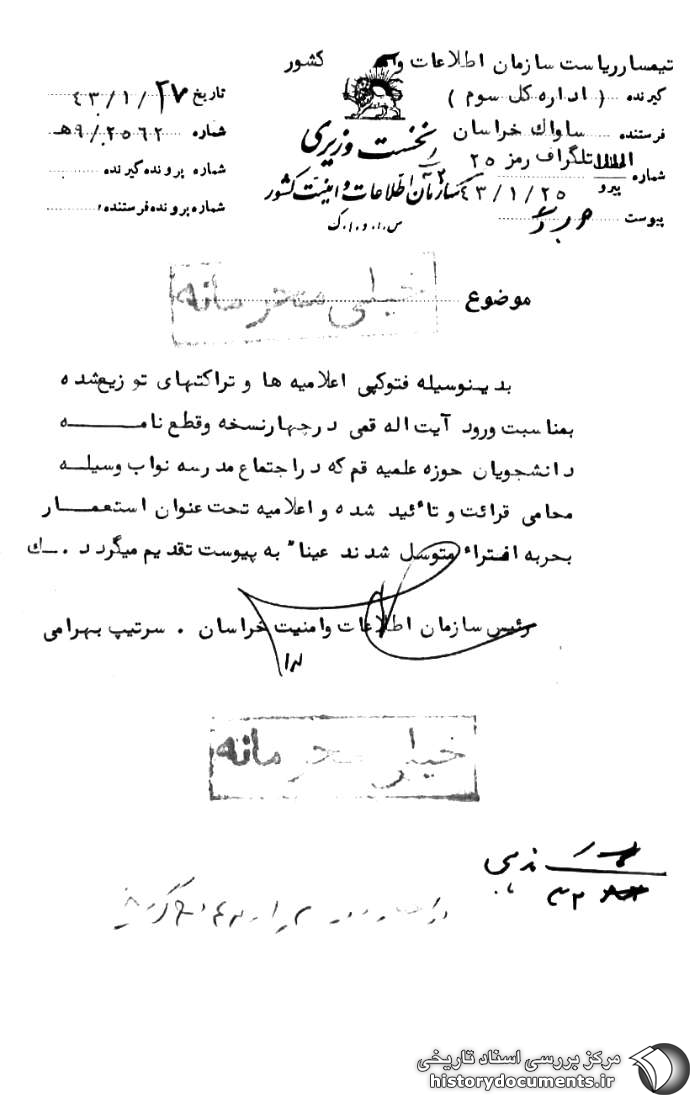 تیمسار ریاست سازمان اطلاعات و کشور
گیرنده ( اداره کل سوم )
فرستنده ساواك خراسان
شماره تلگراف رمز ۲۵
پیرو ۴۳/۱/۲۵
پیوست
نخست وزیری
سازمان اطلاعات و امنیت کشور
س.ا.و.ا.ک
تاریخ ۴۳/۱/۲۷
شماره ۹/۲۵۶۲هـ
شماره پرونده گیرنده
شماره پرونده فرستنده
موضوع
خیلی محرمانه
بدینوسیله فتوکپی اعلامیه ها و تراکتهای توزیع شده
بمناسبت ورود آیت اله قمی در چهار نسخه و قطع نامه
دانشجویان حوزه علمیه قم که در اجتماع مدرسه نواب وسیله
محامی قرائت و تائید شده و اعلامیه تحت عنوان استعمار
بحربه افتراء متوسل شدند عیناً به پیوست تقدیم میگردد . ك
رئیس سازمان اطلاعات و امنیت خراسان . سرتیپ بهرامی
خیلی محرمانه
مرکز بررسی اسناد تاریخی
historydocuments.ir